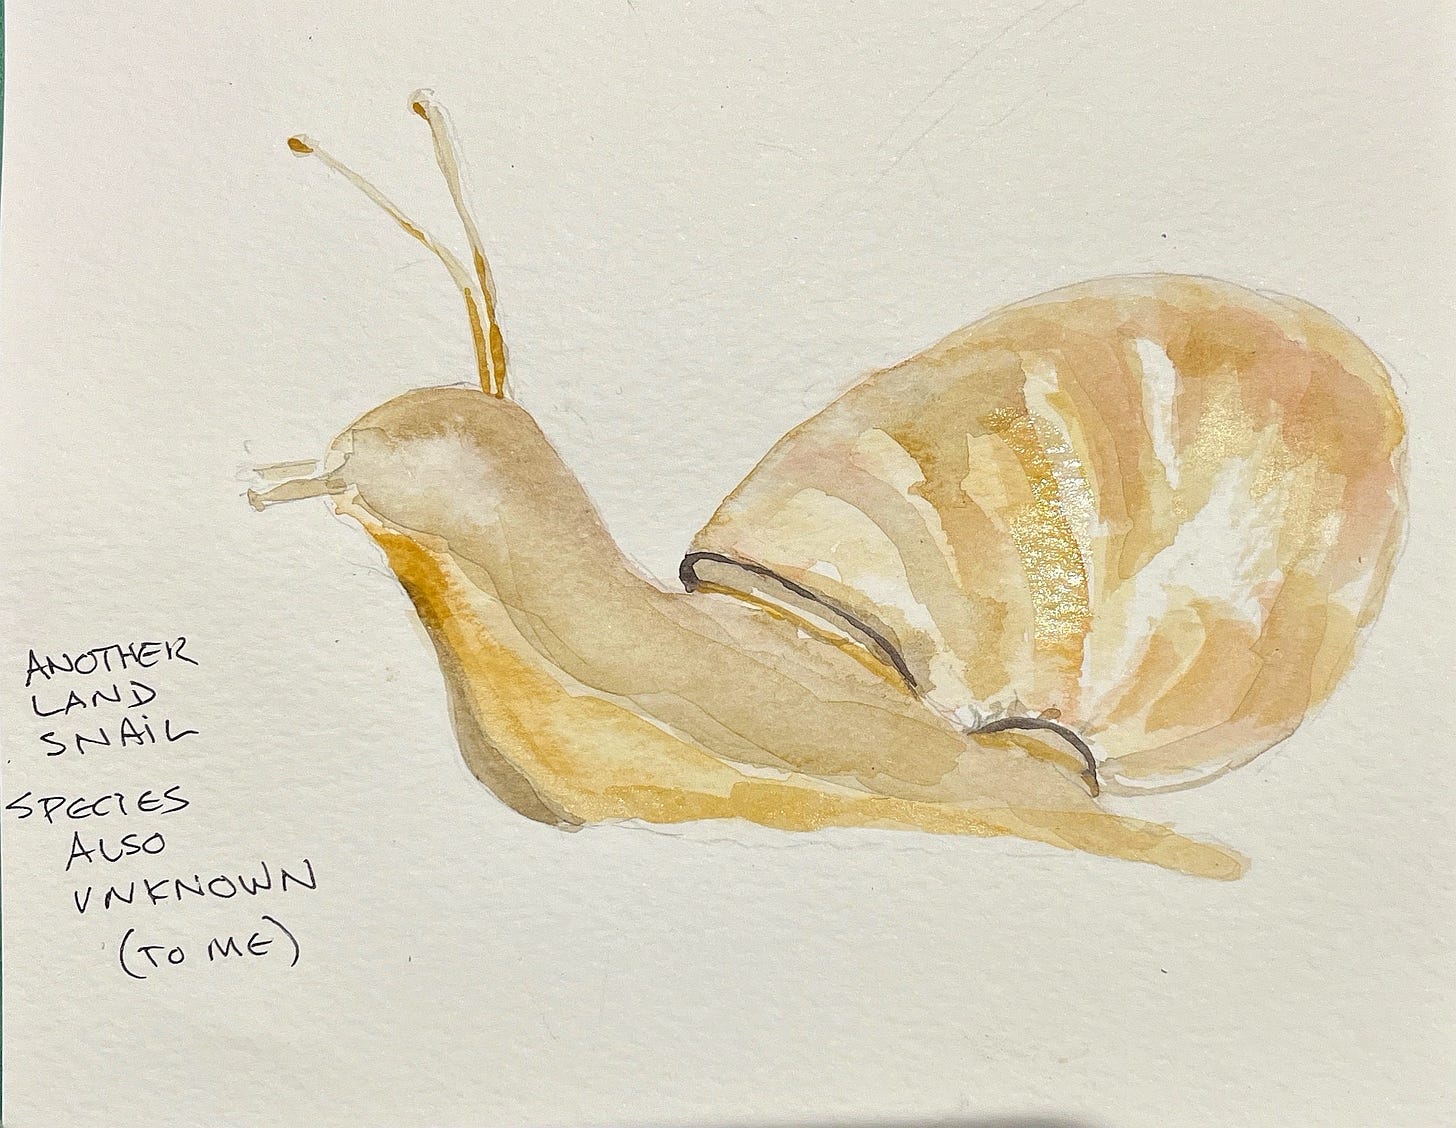 ANOTHER
LAND
SNAIL
SPECIES
ALSO
UNKNOWN
(TO ME)